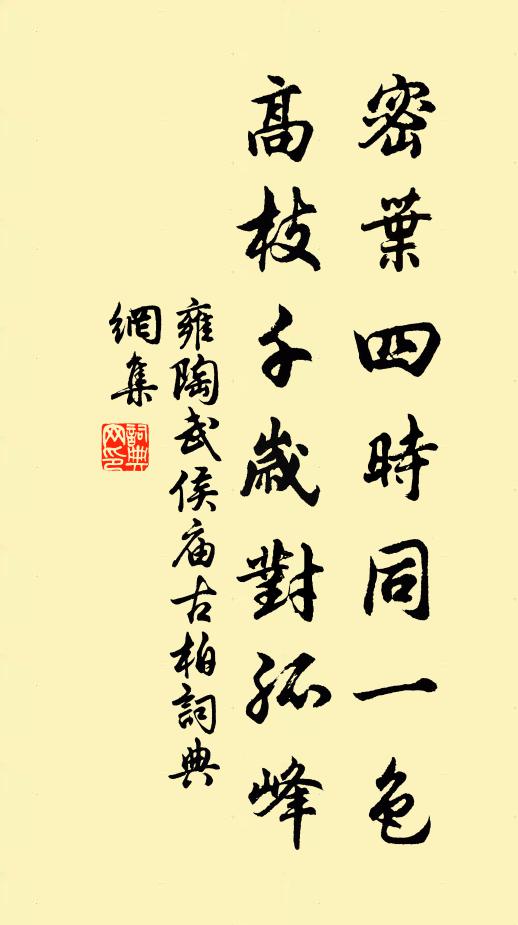 密葉四時同一色
高枝千歲對孤峰
雍陶武侯庙古柏詞典
網集
詞典
网印